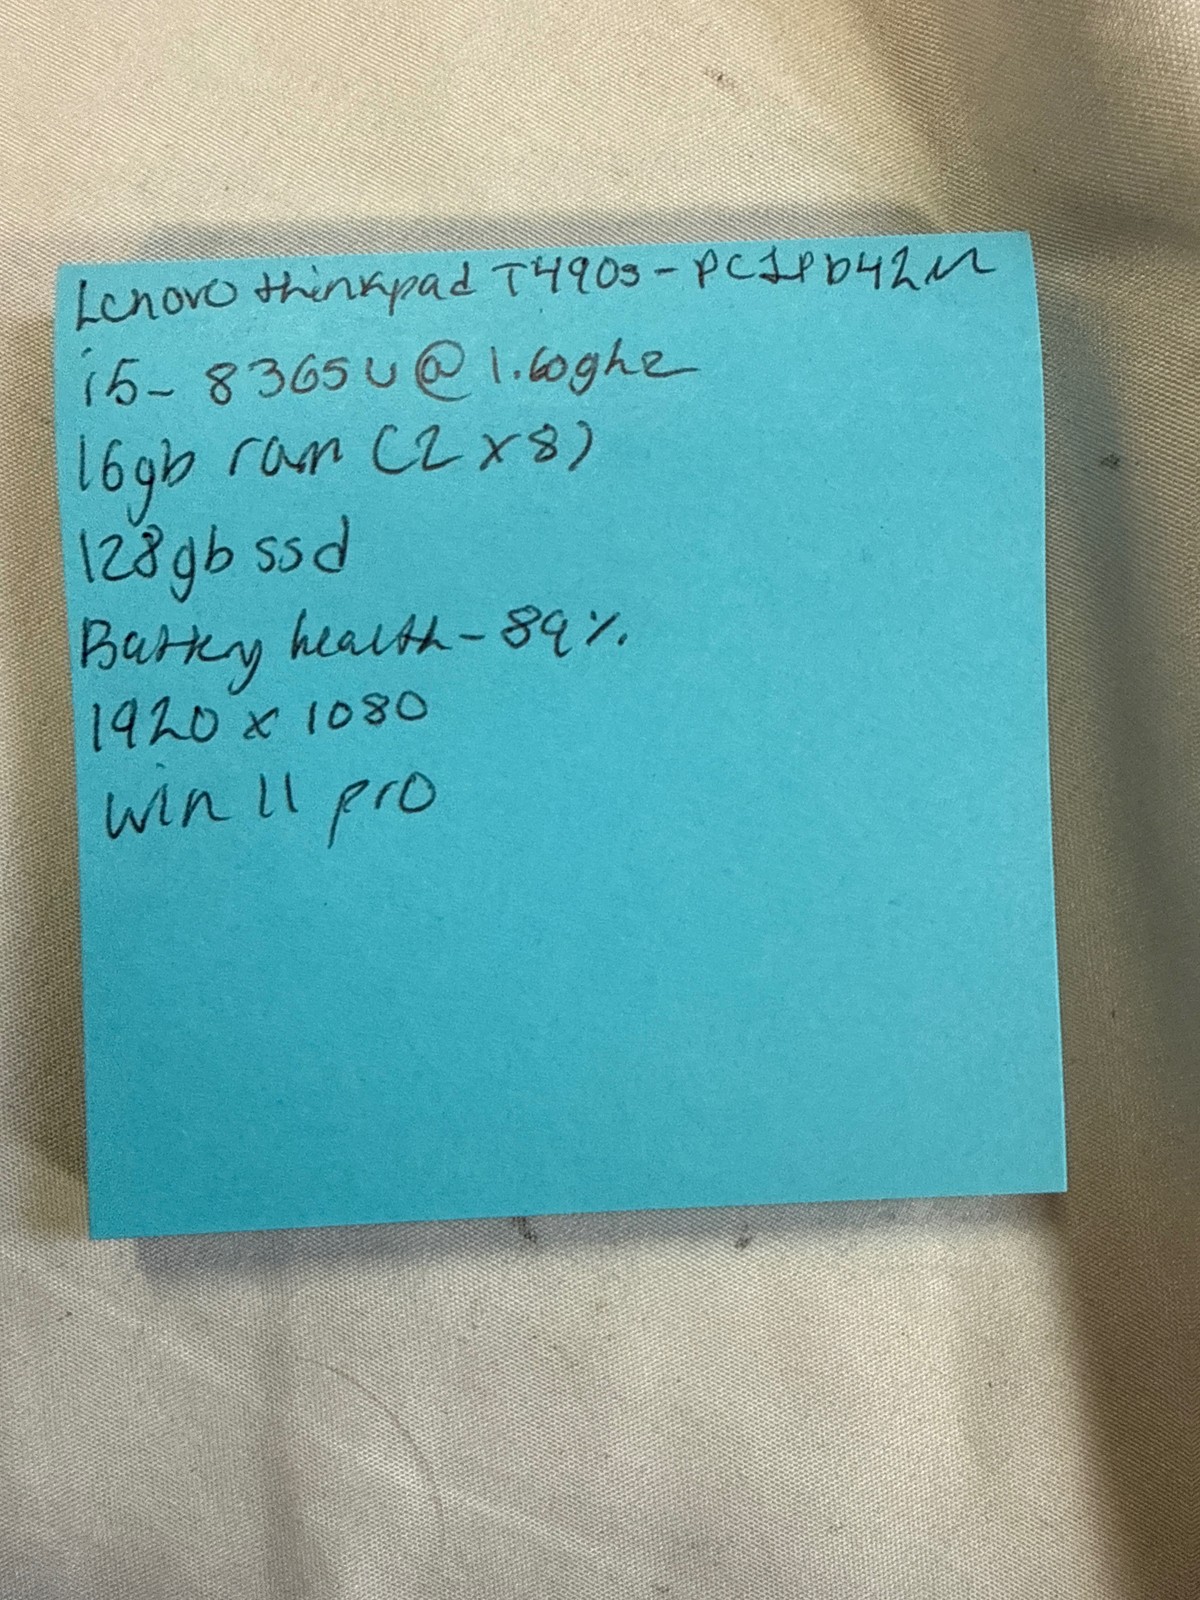 Lenovo thinkpad T490s - PC1PD42M
i5 - 8365U @ 1.60ghz
16gb ram (2 x 8)
128gb ssd
Battery health - 89%
1920 x 1080
win 11 pro